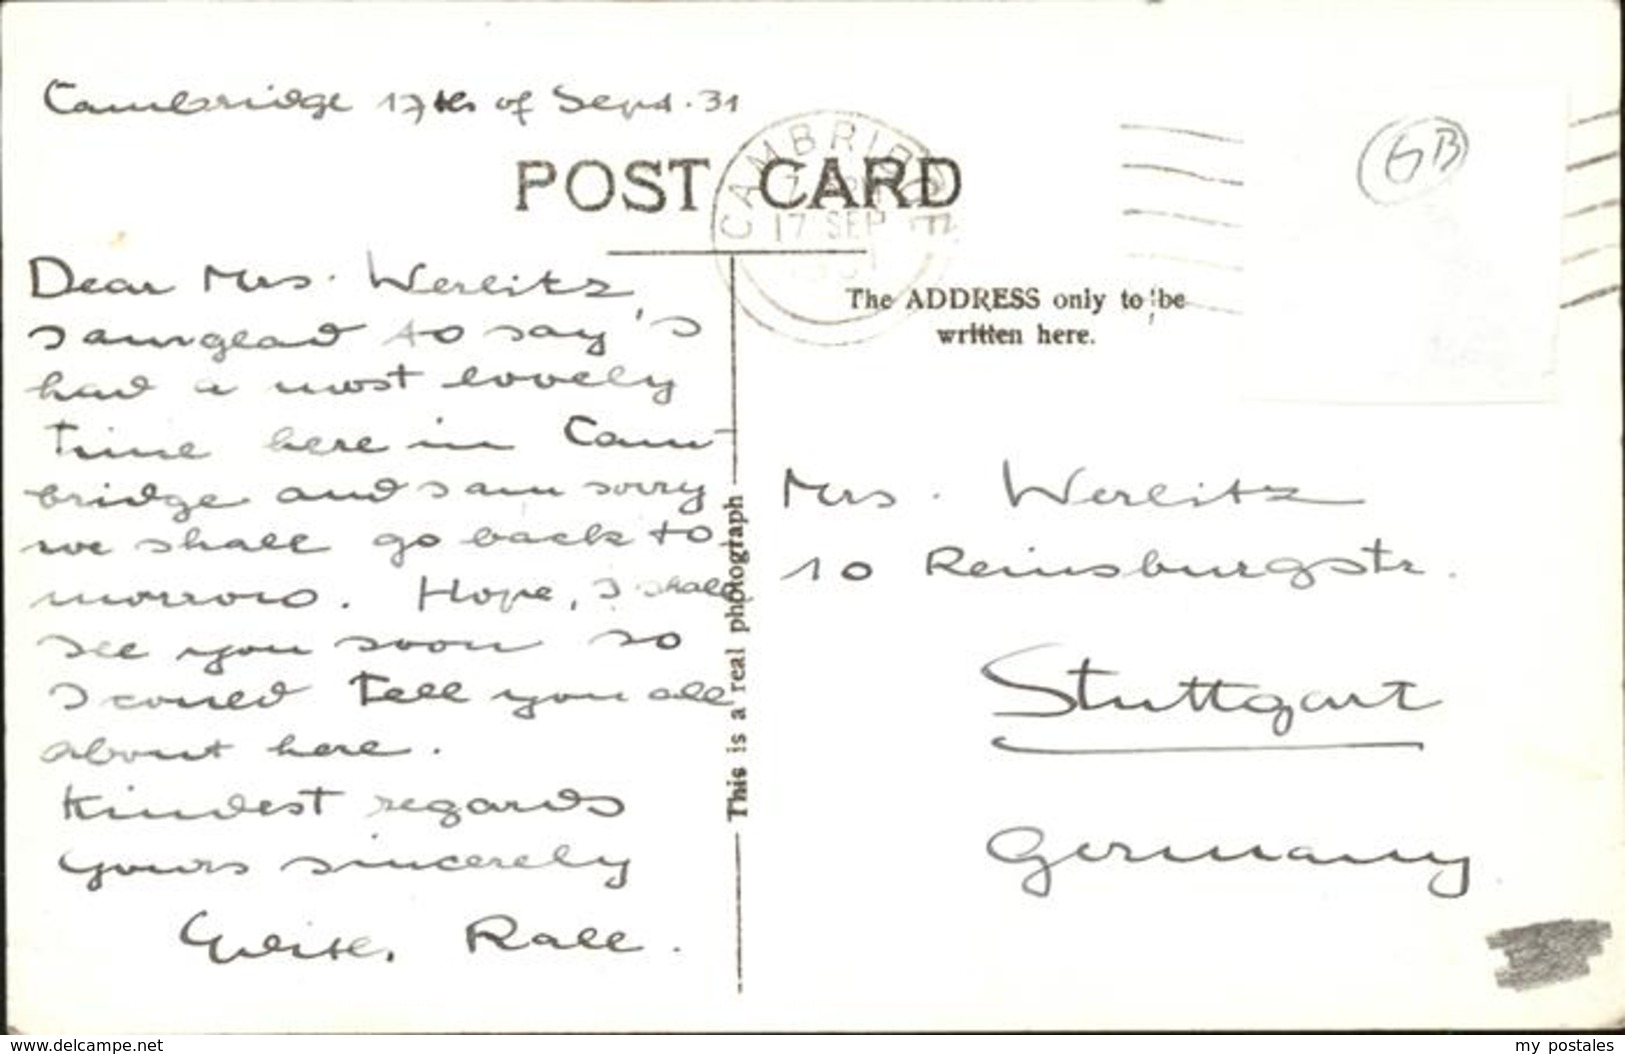 Cambridge 17th of Sept. 31
POST CARD
CAMBRIDGE
17 SEP
GB
Dear Mrs. Werlitz,
I am glad to say I
had a most lovely
time here in Cam-
bridge and I am sorry
we shall go back to
morrow. Hope, I shall
see you soon so
I could tell you all
about here.
Kindest regards
yours sincerely
Edith Rall.
This is a real photograph
The ADDRESS only to be
written here.
Mrs. Werlitz
10 Reinsburgstr.
Stuttgart
Germany
www.delcampe.net
my postales